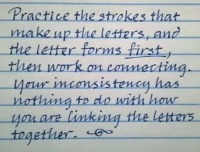 Practice the strokes that
make up the letters, and
the letter forms first,
then work on connecting.
Your inconsistency has
nothing to do with how
you are linking the letters
together.